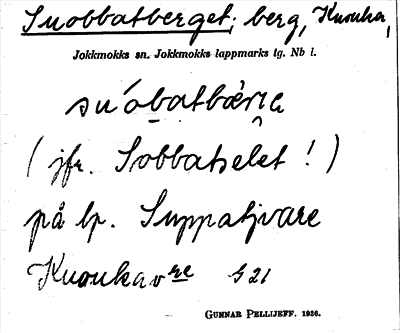 Suobbatberget; berg, Kuouka,
Jokkmokks sn. Jokkmokks lappmarks tg. Nb l.
suóbatbær̀ìe
(jfr. Sobbatselet!)
på lp. Suppatjvare
Kuoukavre G 21
GUNNAR PELLIJEFF. 1936.